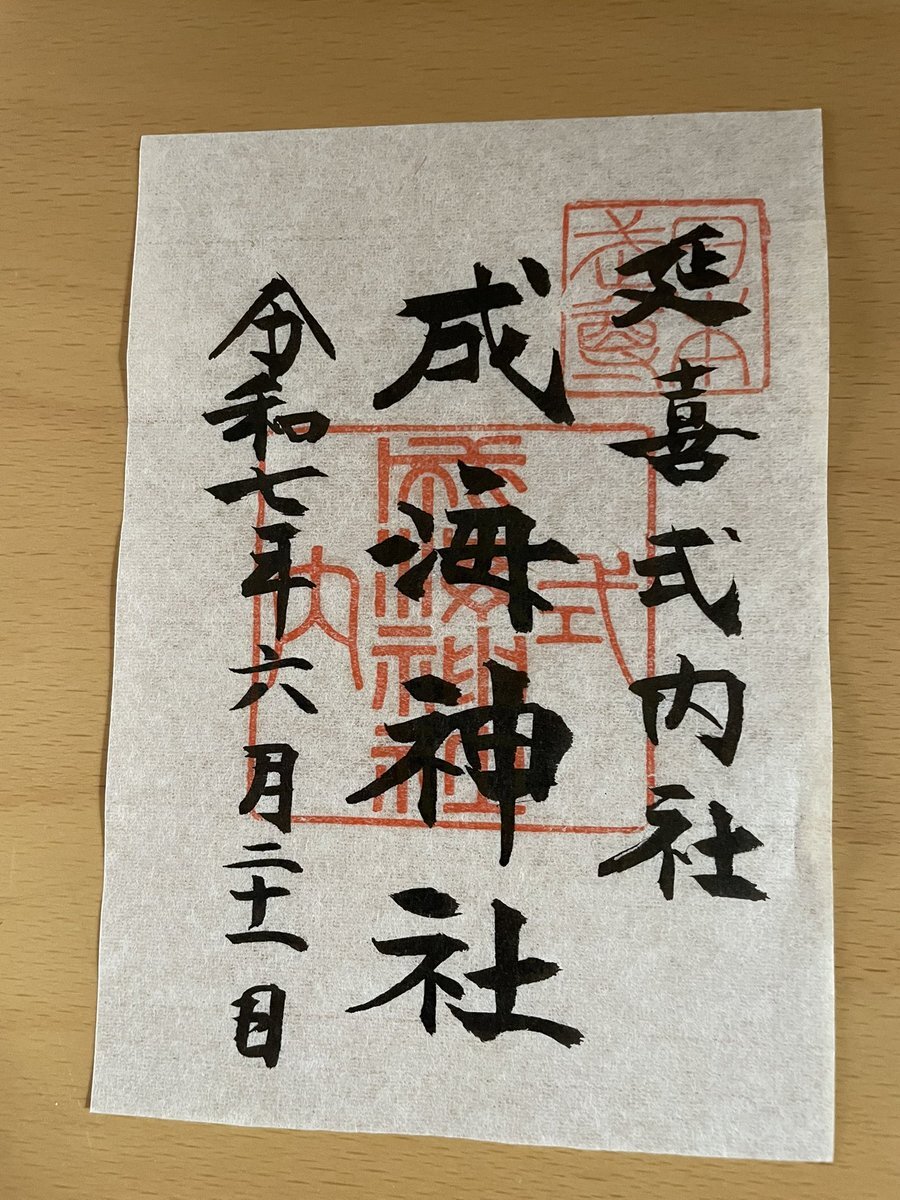 延喜式内社
成海神社
令和七年六月二十一日
式
内